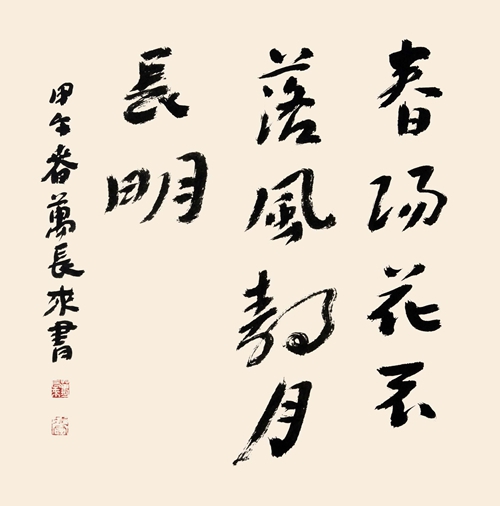 春陽花不
落風靜月
長明
甲午春萬長來書